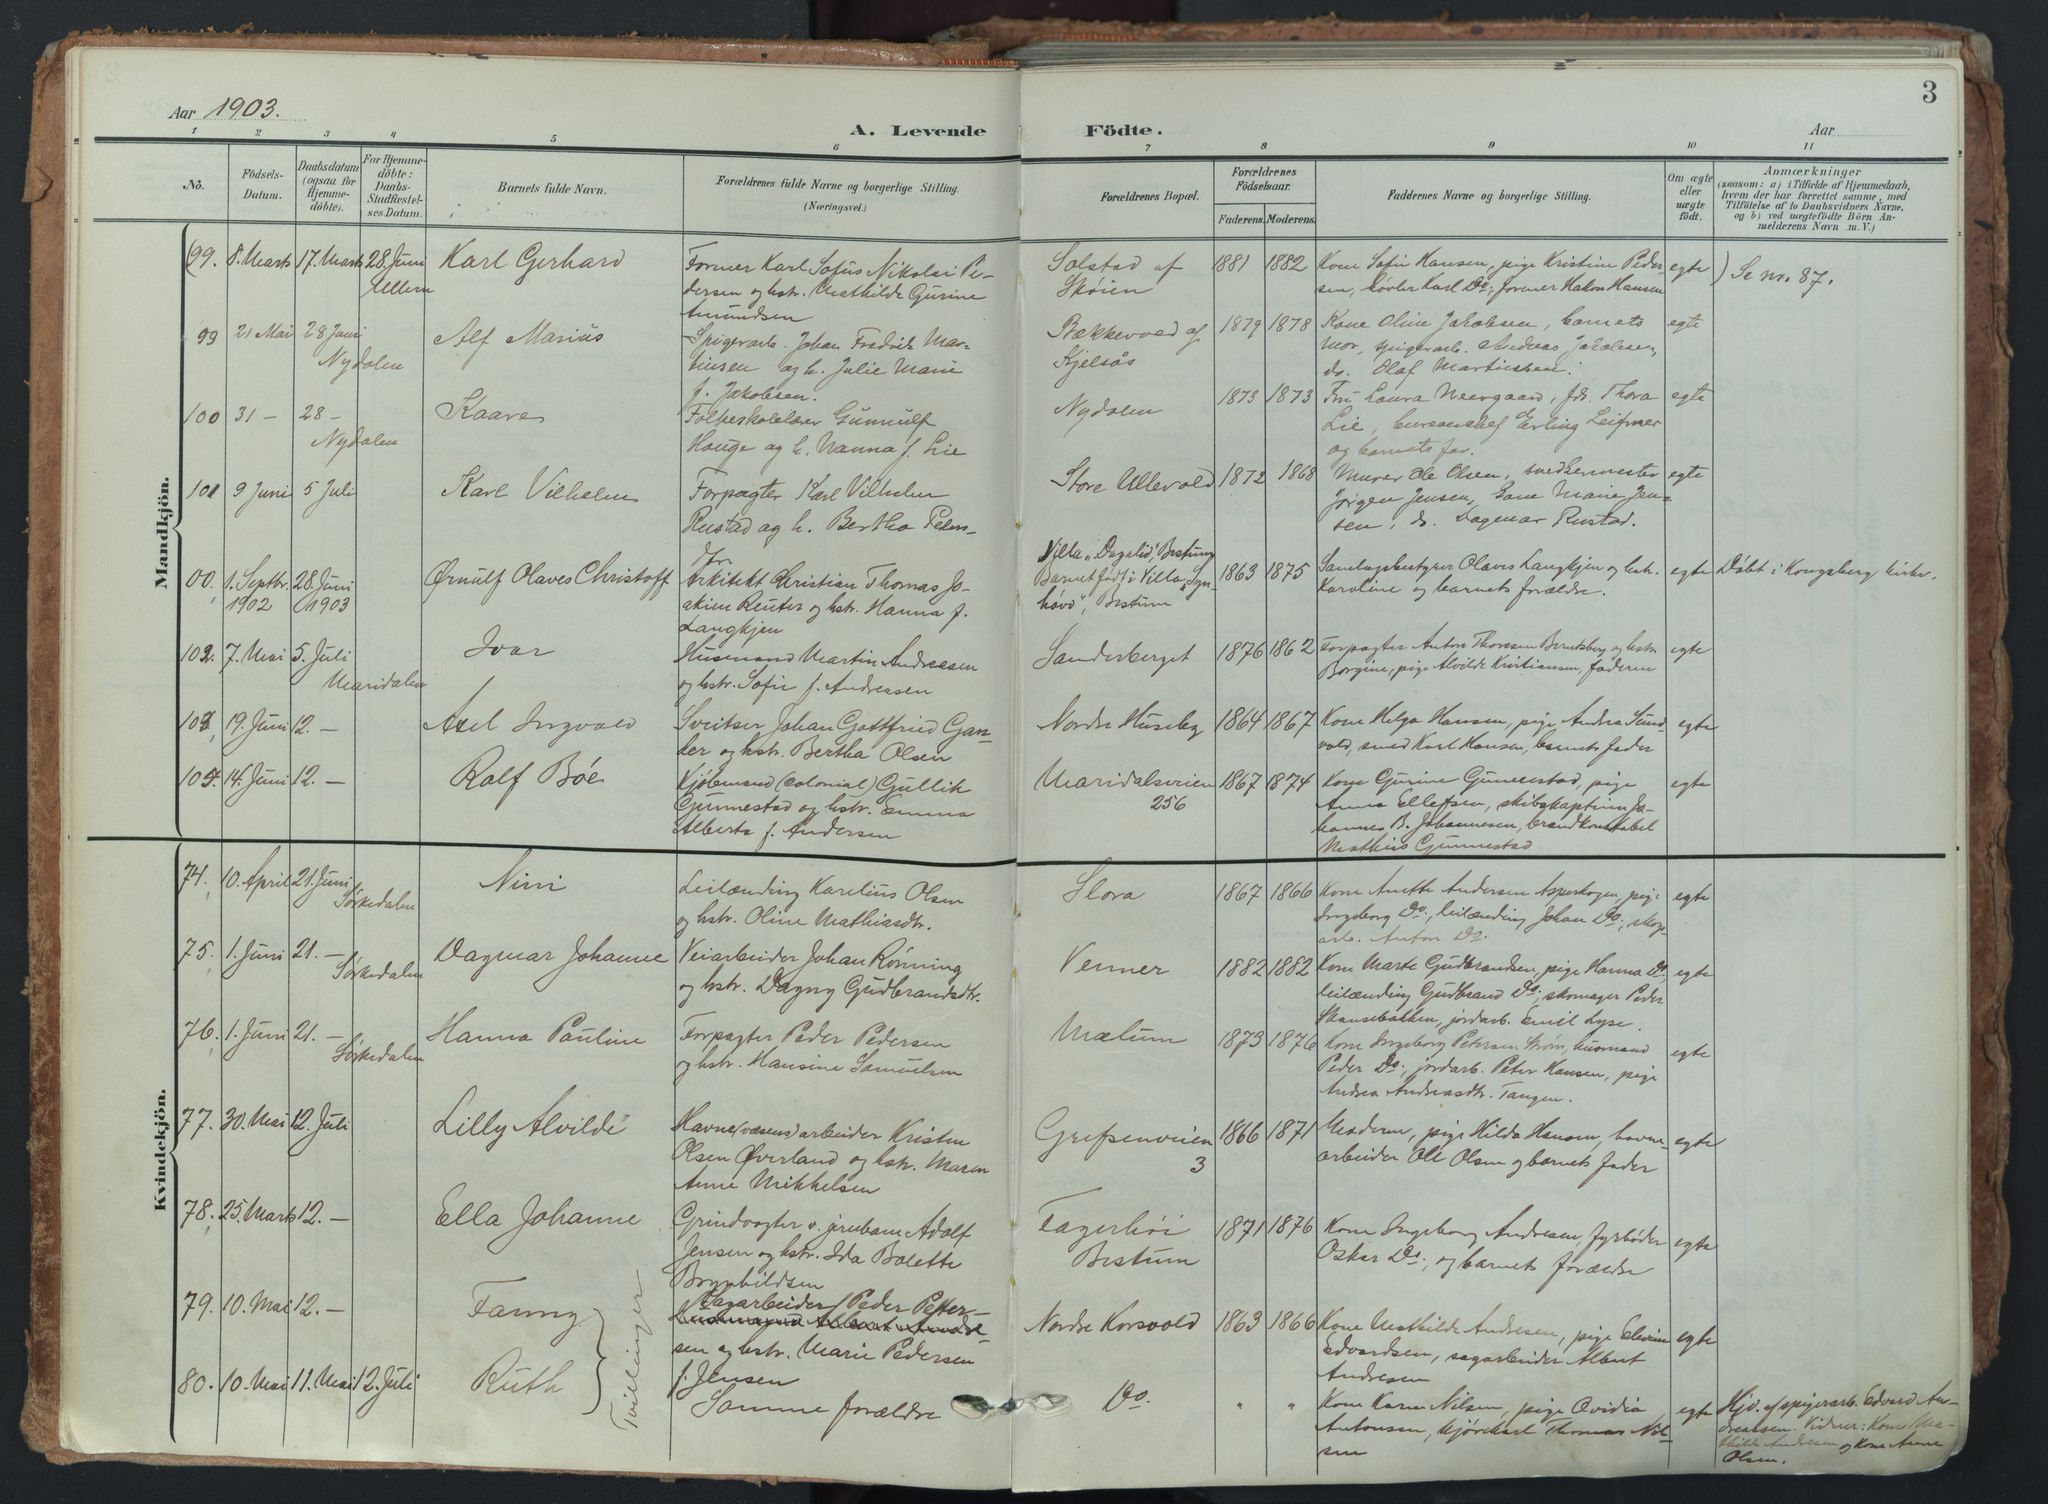 3
Aar 1903.
A. Levende Födte.
Aar
1 2 3 4 5 6 7 8 9 10 11
No.
Födsels-Datum.
Daabsdatum (ogsaa for Hjemmedöbte).
For Hjemmedöbte: Daabs-Stadfæstelses Datum.
Barnets fulde Navn.
Forældrenes fulde Navne og borgerlige Stilling. (Næringsvei.)
Forældrenes Bopæl.
Forældrenes Födselsaar.
Faderens. Moderens.
Faddernes Navne og borgerlige Stilling.
Om ægte eller uægte født.
Anmærkninger
(saasom: a) i Tilfælde af Hjemmedaab,
hvem der har forrettet samme, med
Tilföielse af to Daabsvidners Navne,
og b) ved uægtefödte Börn An-
melderens Navn m. V.)
Mandkjön.
(99. 8. Marts 17. Marts 28. Juni Ullern
Karl Gerhard
Former Karl Sofus Nikolai Pe-
dersen og hstr. Mathilde Gurine
Amundsen
Solstad af
Skøien
1881 1882
Kone Sofie Hansen, pige Kristine Peder-
sen, Høvler Karl Do; former Hakon Hansen
egte
) Se no. 87.
99 21 Mai 28 Juni Nydalen
Alf Marius
Spigerarb. Johan Fredrik Mar-
tinsen og h. Julie Marie
f. Jakobsen.
Bækkevold af
Kjelsås
1879 1878
Kone Oline Jakobsen, barnets
mor, spigerarb. Andreas Jakobsen,
do. Olaf Martinsen.
egte
100 31 - 28 - Nydalen
Kaare
Folkeskolelærer Gunnulf
Hauge og h. Nanna f. Lie
Nydalen
1873 1873
Fru Laura Neergaard, frk. Thora
Lie, bureauchef Erling Leifmer
og barnets far.
egte
101 9 Juni 5 Juli
Karl Vilhelm
Forpagter Karl Vilhelm
Rustad og h. Bertha Peders-
dtr.
Store Ullevold
1872 1868
Murer Ole Olsen, snedkermester
Jørgen Jensen, kone Marie Jen-
sen, do. Dagmar Rustad.
egte
00. 1. Septbr. 1902 28. Juni 1903
Ørnulf Olaves Christoff
Arkitekt Christian Thomas Jo-
akim Reuter og hstr. Hanna f.
Langkjen
Villa "Dagalid", Bestum
Barnet født i Villa "Syn-
høvd", Bestum
1863 1875
Samlagsbestyrer Olaves Langkjen og hstr.
Karoline og barnets forældre.
egte
Døbt i Kongsberg kirke.
102. 7. Mai 5. Juli Maridalen
Ivar
Husmand Martin Andreasen
og hstr. Sofie f. Andreasen
Sanderberget
1876 1862
Forpagter Anton Thomsen Berntsberg og hstr.
Borgine, pige Alvilde Kristiansen, faderen
egte
103, 19. Juni 12. -
Axel Ingvald
Sveitser Johan Gottfried Gan-
der og hstr. Bertha Olsen
Nordre Huseby
1864 1867
Kone Helga Hansen, pige Andrea Sund-
vold, smed Karl Hansen, barnets fader
egte
104. 14. Juni 12. -
Rolf Bøe
Kjøbmand (colonial) Gullik
Gunnestad og hstr. Emma
Alberta f. Andersen
Maridalsveien
256
1867 1874
Kone Gurine Gunnestad, pige
Anna Ellefsen, skibskaptein Jo-
hannes B. Johannesen, brandkonstabel
Mathias Gunnestad
egte
Kvindekjön.
74. 10. April 21. Juni Sørkedalen
Nini
Leilænding Karelius Olsen
og hstr. Oline Mathiasdtr.
Slora
1867 1866
Kone Anette Andersen Asperskogen, pige
Ingeborg Do, leilænding Johan Do, skog-
arb. Anton Do.
egte
75. 1. Juni 21. - Sørkedalen
Dagmar Johanne
Veiarbeider Johan Rønning
og hstr. Dagny Gudbrandsdtr.
Venner
1882 1882
Kone Marte Gudbrandsen, pige Hanna Do,
leilænding Gudbrand Do, skomager Peder
Skansebakken, jordarb. Emil Lyse.
egte
76. 1. Juni 21. - Sørkedalen
Hanna Pauline
Forpagter Peder Pedersen
og hstr. Hansine Samuelsen
Mælum
1873 1876
Kone Ingeborg Petersen Strøm, husmand
Peder Do, jordarb. Peter Hansen, pige
Andrea Andreasdtr. Tangen.
egte
77. 30. Mai 12. Juli
Lilly Alvilde
Havne(væsens)arbeider Kristen
Olsen Øverland og hstr. Maren
Anne Mikkelsen
Grefsenveien
3
1866 1871
Moderen, pige Hilda Hansen, havne-
arbeider Ole Olsen og barnets fader
egte
78. 25. Marts 12. -
Ella Johanne
Grindvogter v. jernbanen Adolf
Jensen og hstr. Ida Bolette
Brynhildsen
Fagerhøi
Bestum
1871 1876
Kone Ingeborg Andresen, fyrbøder
Oskar Do, og barnets forældre
egte
79. 10. Mai 12. -
Fanny
Dagarbeider Peder Petter-
sen og hstr. Marie Pedersen
f. Jensen
Nordre Korsvold
1863 1866
Kone Mathilde Andresen, pige Elvine
Edvardsen, sagarbeider Albert
Andresen
egte
Tvillinger
80. 10. Mai 11. Mai 12. Juli
Ruth
Samme forældre
Do.
" "
Kone Karen Nilsen, pige Ovidia
Antonsen, kjørekarl Thomas Nil-
sen
egte
Hjd. af spigerarb. Edvard An-
dreassen. Vidner: Kone Ma-
thilde Andresen og Kone Anne
Olsen.